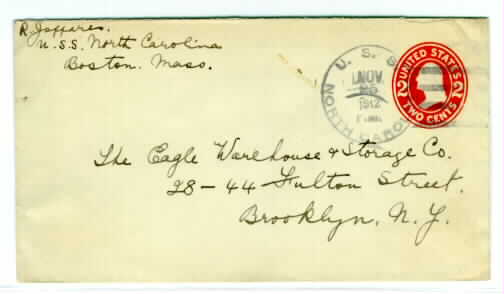 R. Jeffares.
U.S.S. North Carolina
Boston. Mass.
U. S. S.
NOV
25
1912
NORTH CAROL
UNITED STATES
2 2
TWO CENTS
The Eagle Warehouse & Storage Co.
28-44 Fulton Street.
Brooklyn, N.Y.